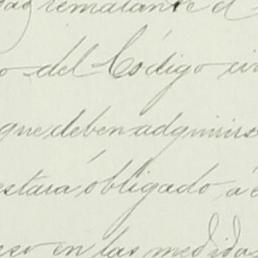 rematante el
o del Código civ
que deben adquirirse
estará obligado, á e
eso en las medidas